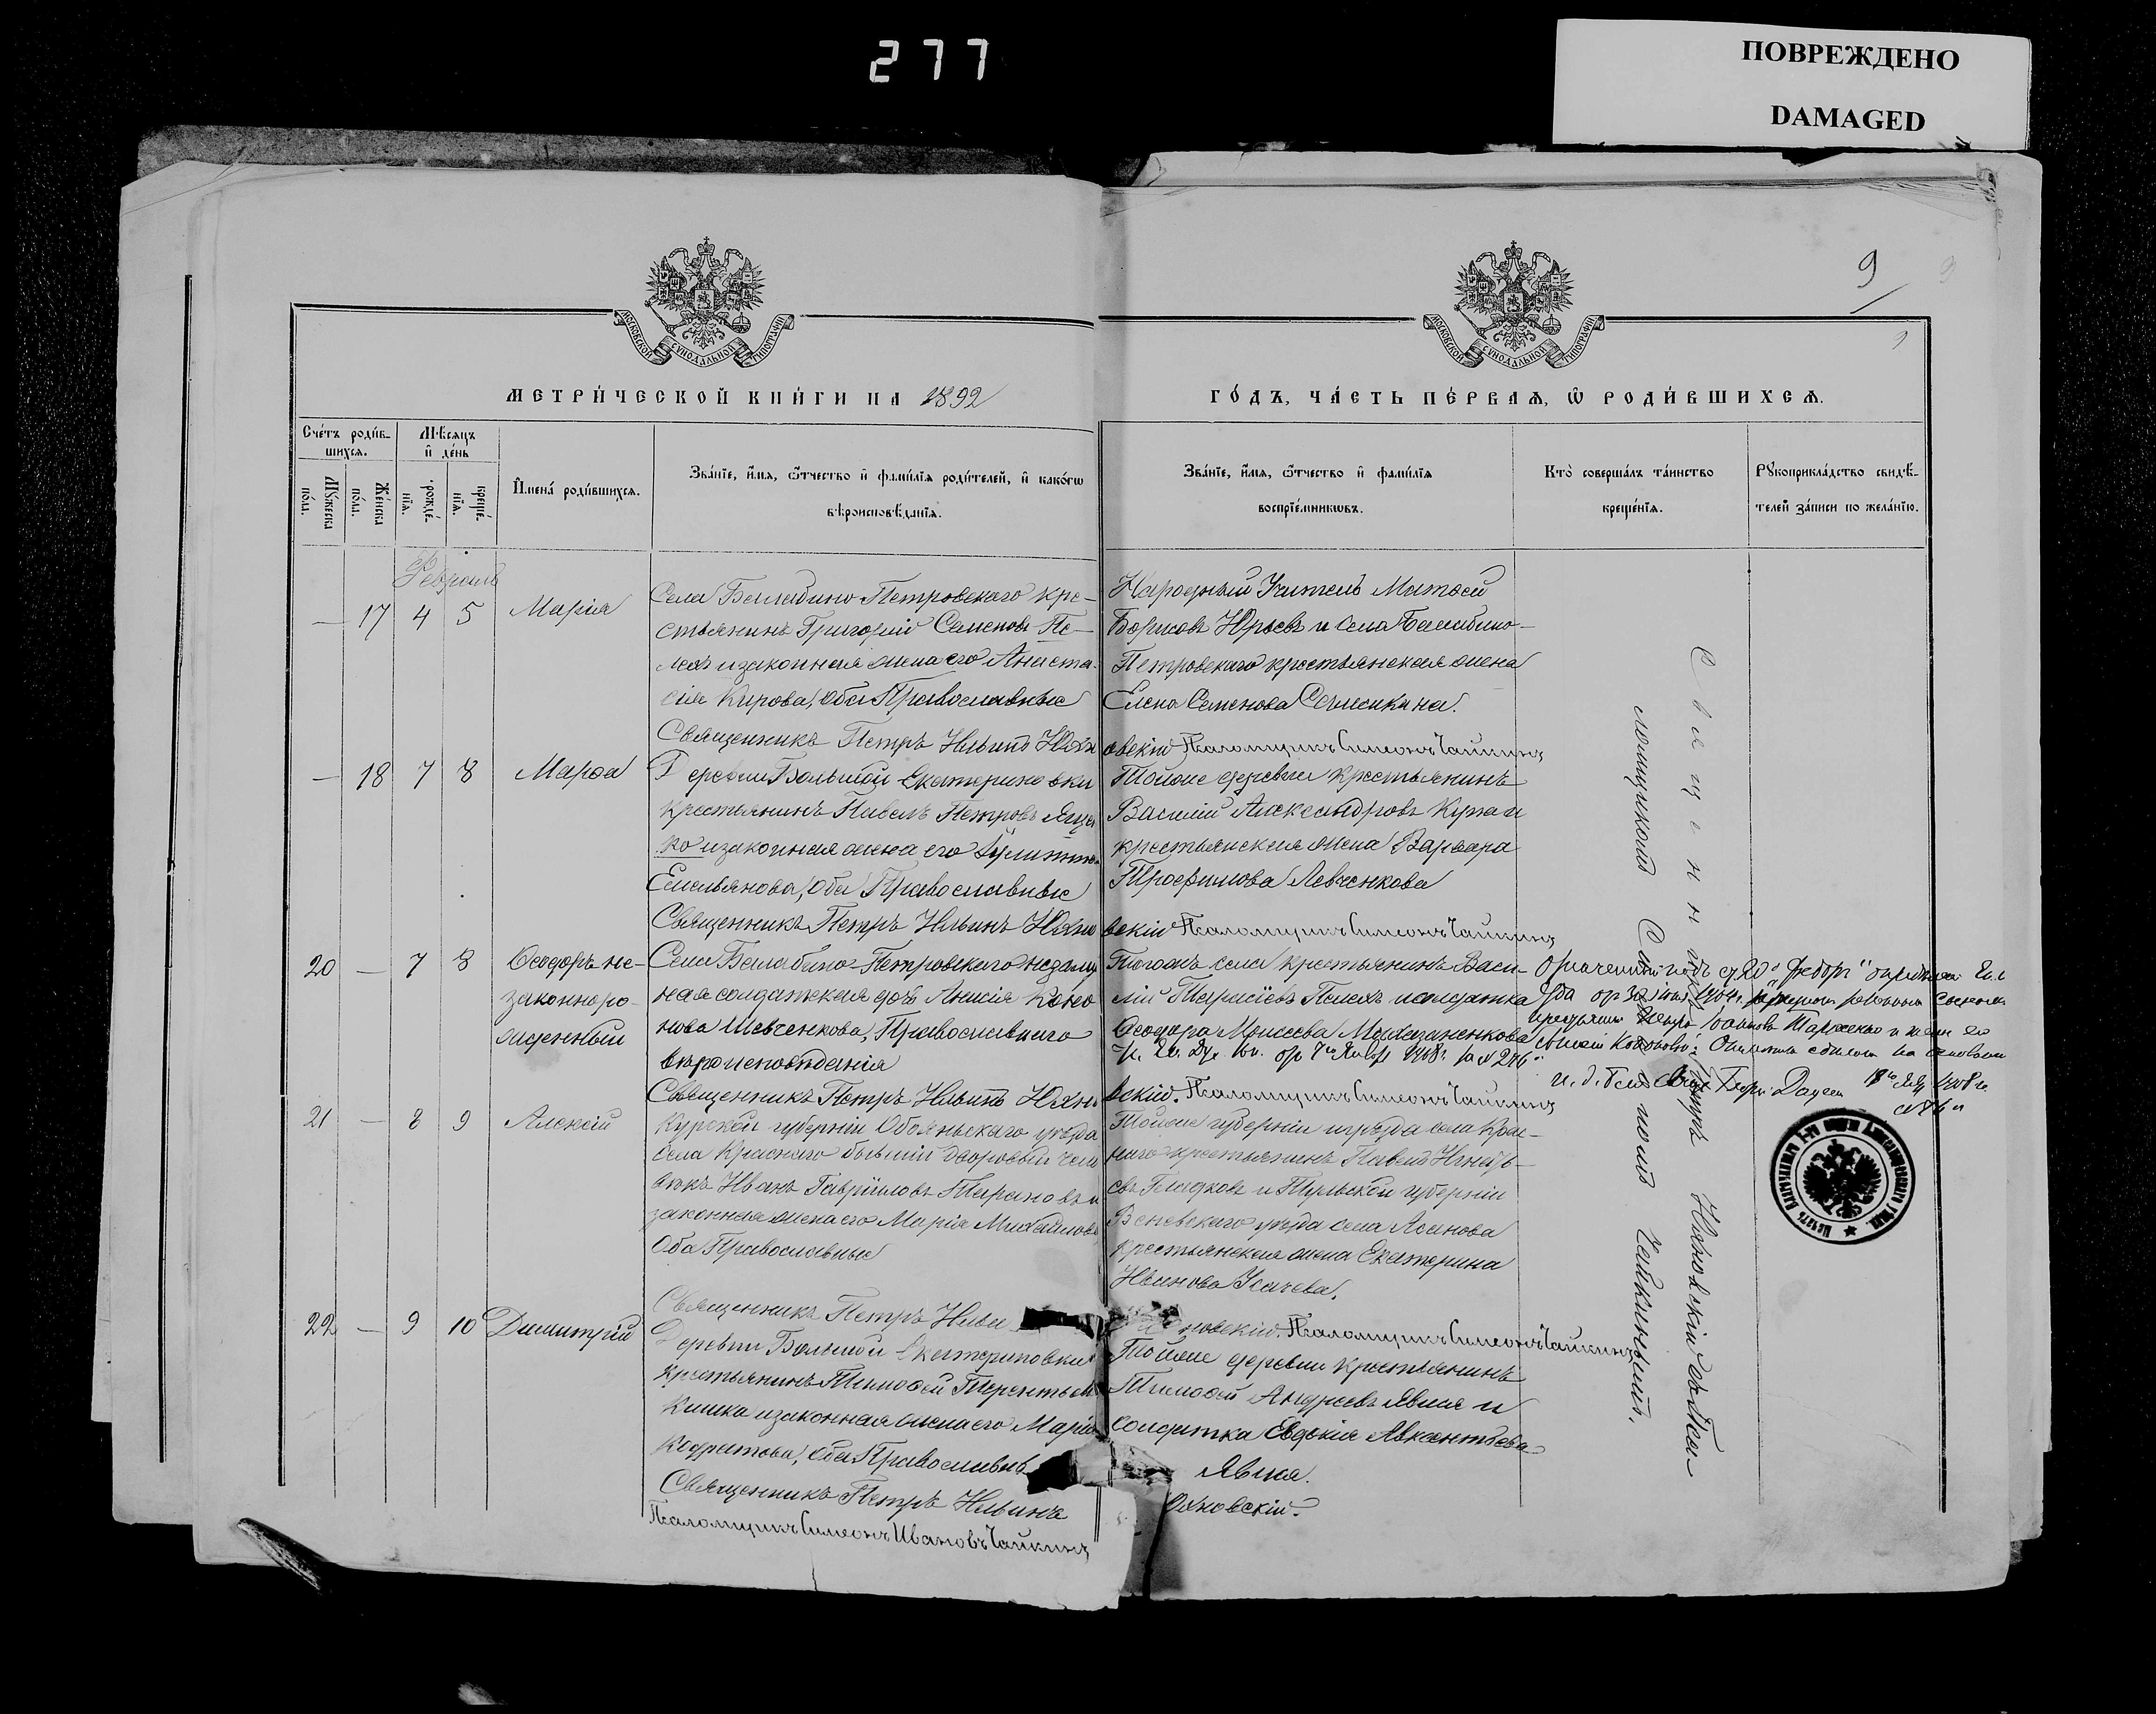 277
ПОВРЕЖДЕНО
DAMAGED
9
МОСКОВСКОЙ СУНОДАЛЬНОЙ ТИПОГРАФІИ
МОСКОВСКОЙ СУНОДАЛЬНОЙ ТИПОГРАФІИ
МЕТРИ́ЧЕСКОЙ КНИ́ГИ НА 1892
ГО́ДЪ, ЧА́СТЬ ПЕ́РВАѦ, Ѡ РОДИ́ВШИХСѦ.
Сче́тъ роди́вшихсѧ.
Мꙋ́жеска по́ла.
Же́нска по́ла.
Мѣ́сѧцъ и҆ де́нь
рожде́нїѧ.
креще́нїѧ.
И҆мена̀ роди́вшихсѧ.
Зва́нїе, и҆́мѧ, ѻ҆́тчество и҆ фами́лїѧ роди́телей, и҆ како́гѡ
вѣроисповѣ́данїѧ.
Зва́нїе, и҆́мѧ, ѻ҆́тчество и҆ фами́лїѧ
воспрїе́мникѡвъ.
Кто̀ соверша́лъ та́инство
креще́нїѧ.
Рꙋкоприкла́дство свидѣ́телей за́писи по жела́нїю.
Февраль
— 17 4 5 Марія
Села Балабино-Петровскаго кре-
стьянинъ Григорій Семеновъ Пе-
лехъ и законная жена его Анаста-
сія Кирова, оба Православные
Народный Учитель Матѳей
Борисовъ Юрьевъ и села Балабино-
Петровскаго крестьянская жена
Елена Семенова
Священникъ Петръ Ильинъ Юхновскій Псаломщикъ Симеонъ Чайкинъ
— 18 7 8 Марѳа
Деревни Большой Екатериновки
крестьянинъ Павелъ Петровъ Яцен
ко и законная жена его
Емельянова, оба Православные
Тойже деревни крестьянинъ
Василій Александровъ и
крестьянская жена Варвара
Трофимова Левченкова
Священникъ Петръ Ильинъ Юхновскій Псаломщикъ Симеонъ Чайкинъ
20 — 7 8 Ѳеодоръ не-
законноро-
жденный
Села Балабино-Петровскаго незамуж
няя солдатская дочь Анисія Коно
нова Шевченкова, Православнаго
вѣроисповѣданія
Тогожъ села крестьянинъ Васи-
лій Тарасіевъ Пелехъ и солдатка
Ѳеодора Моисеева
Священникъ Петръ Ильинъ Юхновскій. Псаломщикъ Симеонъ Чайкинъ
21 — 8 9 Алексій
Курской губерніи Обояньскаго уѣзда
села Краснаго бывшій дворовый чело
вѣкъ Иванъ Гавріиловъ Тарановъ и
законная жена его Марія Михайлова
Оба Православные
Тойже губерніи и уѣзда села Крас-
наго крестьянинъ Павелъ
Гладковъ и Тульской губерніи
Веневскаго уѣзда села
крестьянская жена Екатерина
Иванова
Священникъ Петръ Ильи новскій. Псаломщикъ Симеонъ Чайкинъ
22 — 9 10 Димитрій
Деревни Большой Екатериновки
крестьянинъ Тимоѳей Терентьевъ
Кишка и законная жена его Марія
оба Православн
Тойже деревни крестьянинъ
Тимоѳей Андреевъ Явная и
солдатка Евдокія Авксентьева
Явная.
Священникъ Петръ Ильинъ
Юхновскій.
Псаломщикъ Симеонъ Ивановъ Чайкинъ
Священникъ Петръ Юхновскій съ Пса-
ломщикомъ Симеономъ Чайкинымъ.